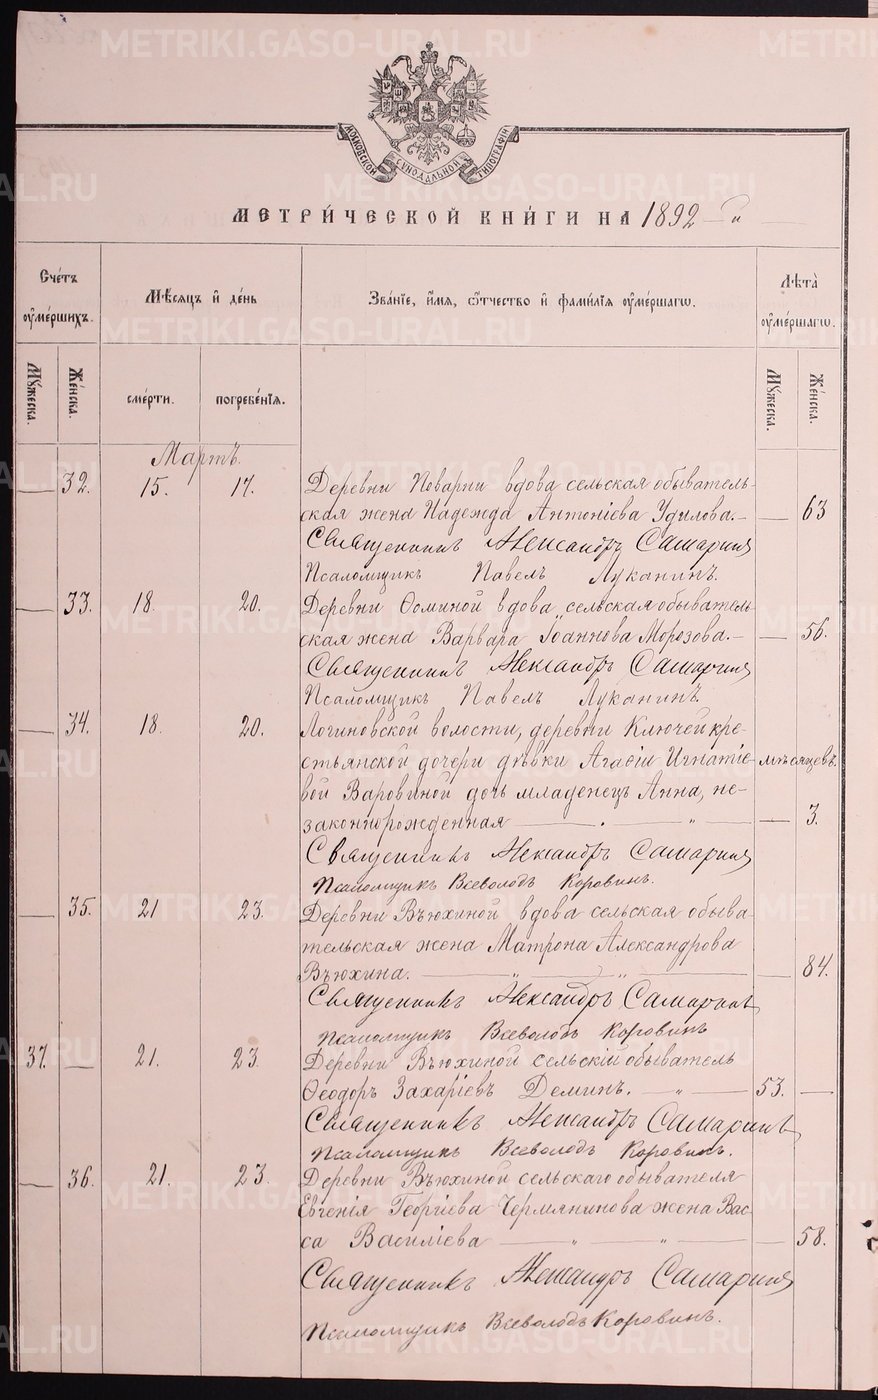 METRIKI.GASO-URAL.RU
МОСКОВСКОЙ СѴНОДАЛЬНОЙ ТИПОГРАФІИ
МЕТРИ́ЧЕСКОЙ КНИ́ГИ НА 1892
Сче́тъ ᲂу҆ме́ршихъ.
Мѣ́сяцъ и҆ де́нь
Зва́нїе, и҆́мя, ѻ҆́тчество и҆ фами́лїя ᲂу҆ме́ршагѡ.
Лѣ́та ᲂу҆ме́ршагѡ.
Мꙋ́жеска.
Же́нска.
сме́рти.
погребе́нїя.
Мꙋ́жеска.
Же́нска.
Мартъ.
— 32. 15. 17. Деревни Поварни вдова сельская обыватель-
ская жена Надежда Антоніева Удилова.— — 63
Священникъ Александръ Самаринъ
Псаломщикъ Павелъ Луканинъ.
— 33. 18. 20. Деревни Ѳоминой вдова, сельская обыватель-
ская жена Варвара Іоаннова Морозова.— — 56.
Священникъ Александръ Самаринъ
Псаломщикъ Павелъ Луканинъ.
— 34. 18. 20. Логиновской волости, деревни Ключей кре-
стьянской дочери дѣвки Агаѳіи Игнатіе- мѣсяцевъ.
вой Варовиной дочь младенецъ Анна, не-
законнорожденная — „ — — 3.
Священникъ Александръ Самаринъ
Псаломщикъ Всеволодъ Коровинъ.
— 35. 21 23. Деревни Вьюхиной вдова сельская обыва-
тельская жена Матрона Александрова
Вьюхина. — „ — „ — — 84.
Священникъ Александръ Самаринъ
Псаломщикъ Всеволодъ Коровинъ
37. — 21. 23. Деревни Вьюхиной сельскій обыватель
Ѳеодоръ Захаріевъ Деминъ. — „ — 53. —
Священникъ Александръ Самаринъ
Псаломщикъ Всеволодъ Коровинъ.
— 36. 21. 23. Деревни Вьюхиной сельскаго обывателя
Евгенія Георгіева Чермянинова жена Вас-
са Василіева — „ — „ — — 58.
Священникъ Александръ Самаринъ
Псаломщикъ Всеволодъ Коровинъ.